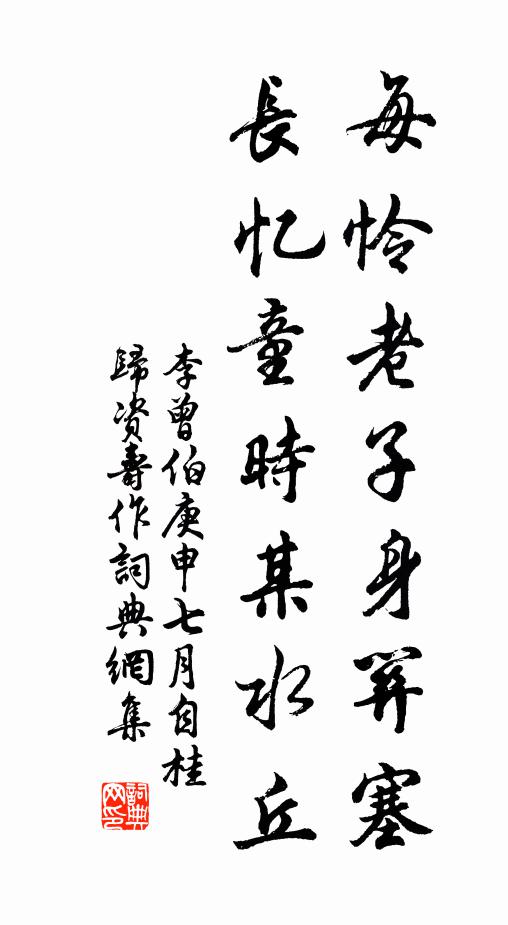 每怜老子身關塞
長忆童時某水丘
李曾伯庚申七月自桂
歸资壽作詞典網集
詞典
网印